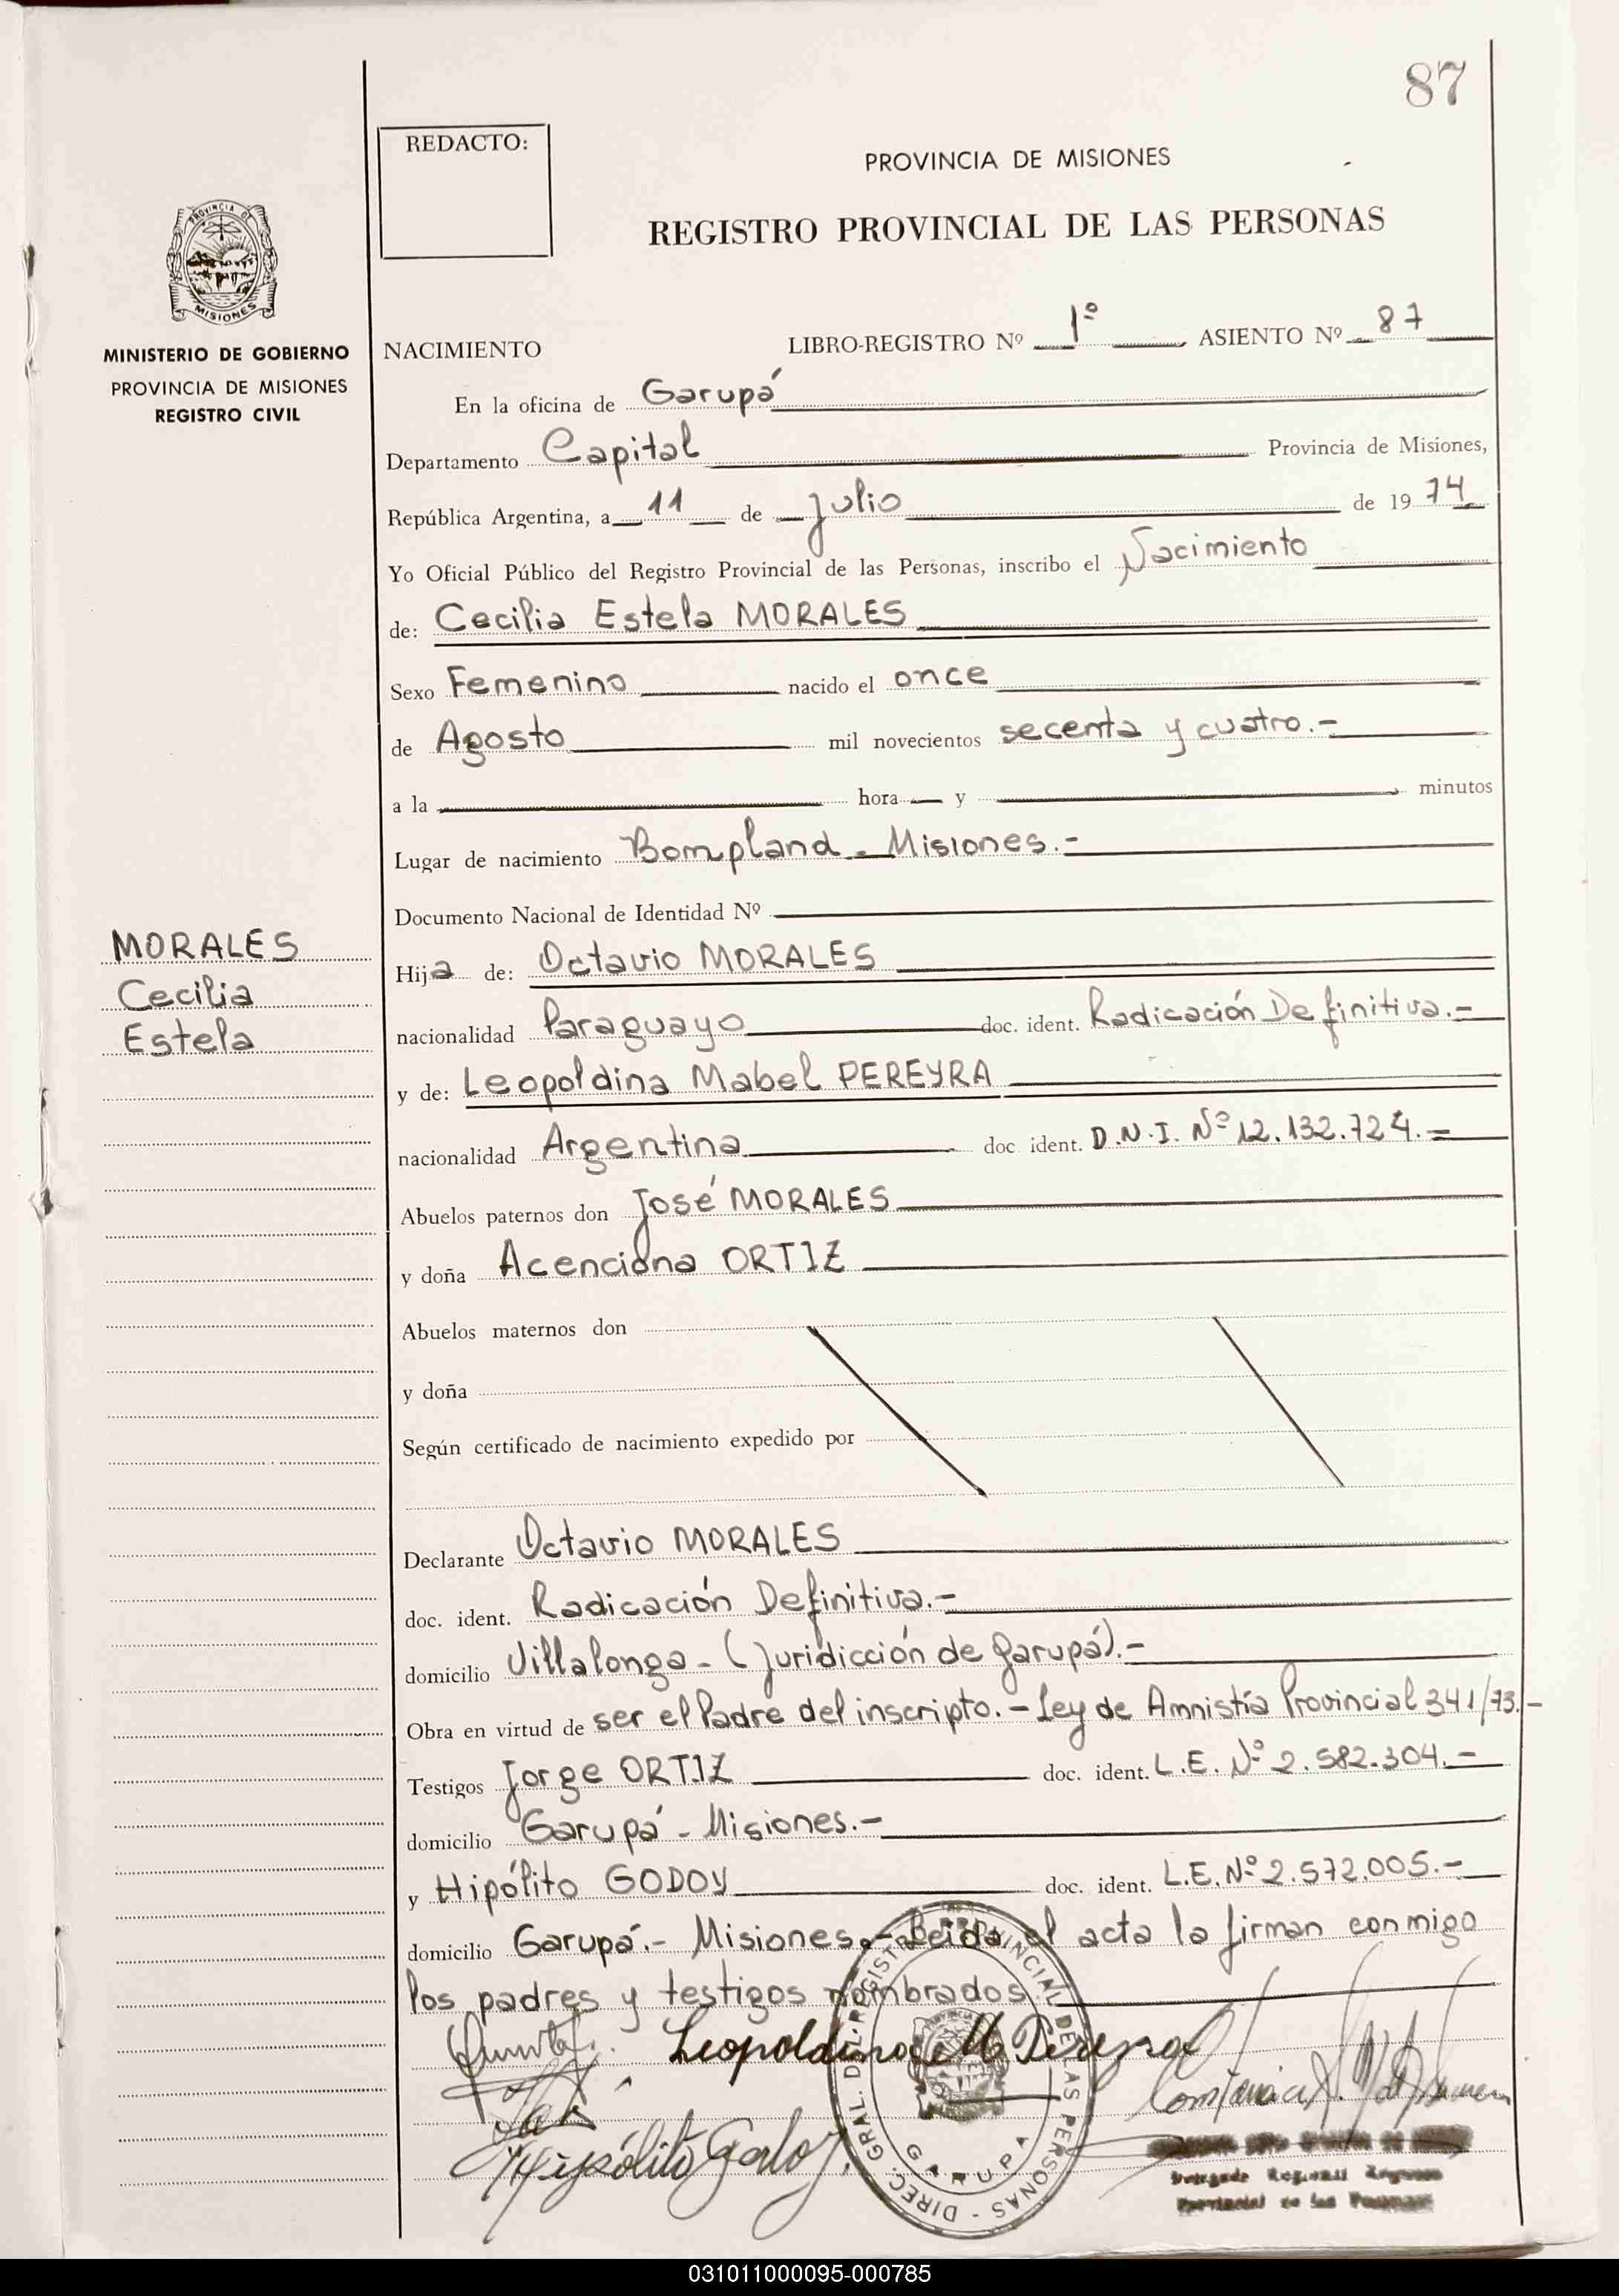 87
REDACTO:
PROVINCIA DE MISIONES
REGISTRO PROVINCIAL DE LAS PERSONAS
PROVINCIA DE
MISIONES
MINISTERIO DE GOBIERNO
PROVINCIA DE MISIONES
REGISTRO CIVIL
NACIMIENTO LIBRO-REGISTRO Nº 1º ASIENTO Nº 87
En la oficina de Garupá
Departamento Capital Provincia de Misiones,
República Argentina, a 11 de julio de 1974
Yo Oficial Público del Registro Provincial de las Personas, inscribo el Nacimiento
de: Cecilia Estela MORALES
Sexo Femenino nacido el once
de Agosto mil novecientos secenta y cuatro.-
a la hora y minutos
Lugar de nacimiento Bompland - Misiones.-
Documento Nacional de Identidad Nº
MORALES
Cecilia
Estela
Hija de: Octavio MORALES
nacionalidad Paraguayo doc. ident. Radicación Definitiva.-
y de: Leopoldina Mabel PEREYRA
nacionalidad Argentina doc. ident. D.N.I. Nº 12.132.724.-
Abuelos paternos don José MORALES
y doña Acenciona ORTIZ
Abuelos maternos don
y doña
Según certificado de nacimiento expedido por
Declarante Octavio MORALES
doc. ident. Radicación Definitiva.-
domicilio Villalonga - (juridicción de garupá).-
Obra en virtud de ser el Padre del inscripto.- Ley de Amnistía Provincial 341/73.-
Testigos Jorge ORTIZ doc. ident. L.E. Nº 2.582.304.-
domicilio Garupá - Misiones.-
y Hipólito GODOY doc. ident. L.E. Nº 2.572.005.-
domicilio Garupá.- Misiones.- Leida el acta la firman conmigo
los padres y testigos nombrados.
Leopoldina M Pereyra
Hipólito Godoy
DIREC. GRAL. DEL REGISTRO PROVINCIAL DE LAS PERSONAS -
GARUPA
Delegado Regional Registro
Provincial de las Personas
031011000095-000785